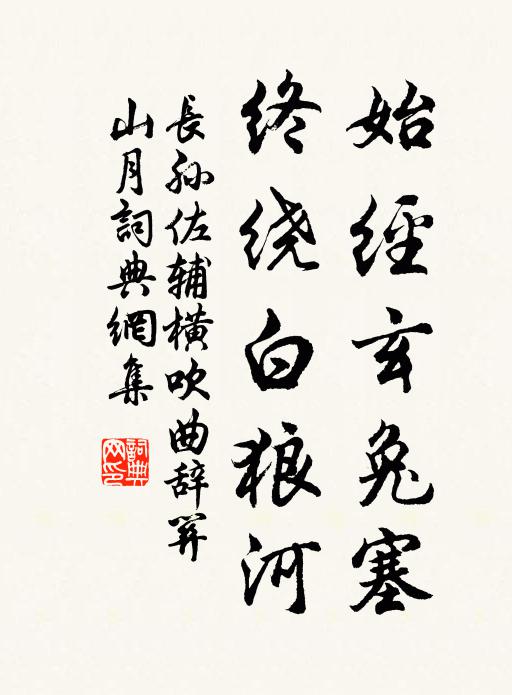 始經玄兔塞
终绕白狼河
長孙佐辅横吹曲辞関
山月詞典網集
詞典网印